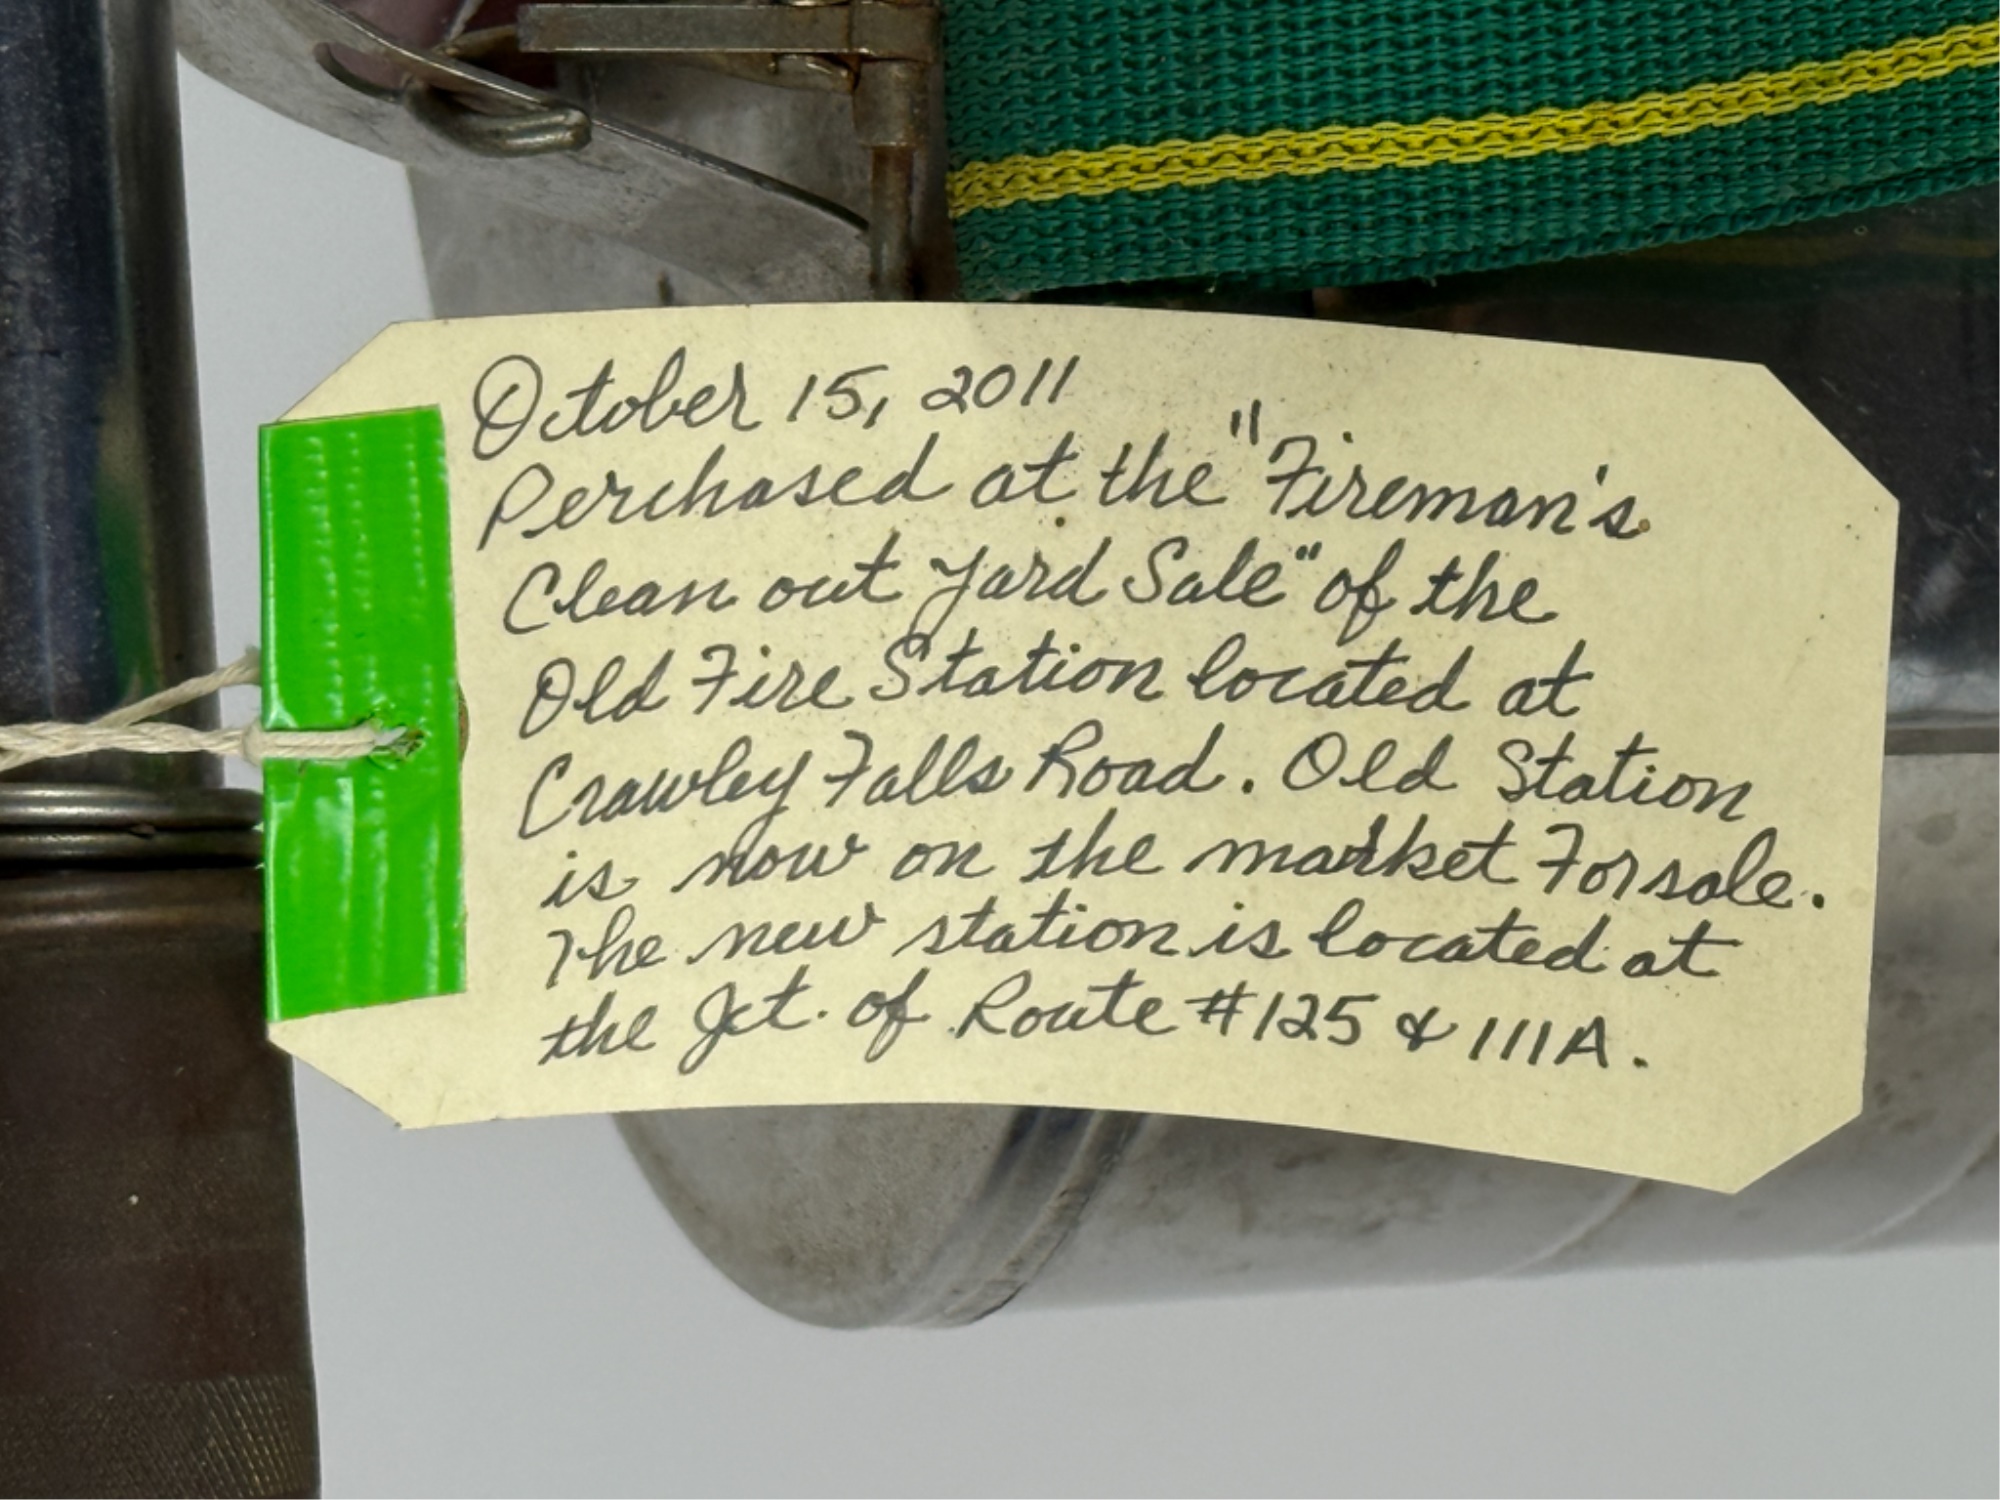 October 15, 2011
Perchased at the "Fireman's
Clean out yard Sale" of the
Old Fire Station located at
Crawley Falls Road. Old Station
is now on the market For sale.
The new station is located at
the Jct. of Route #125 & 111A.